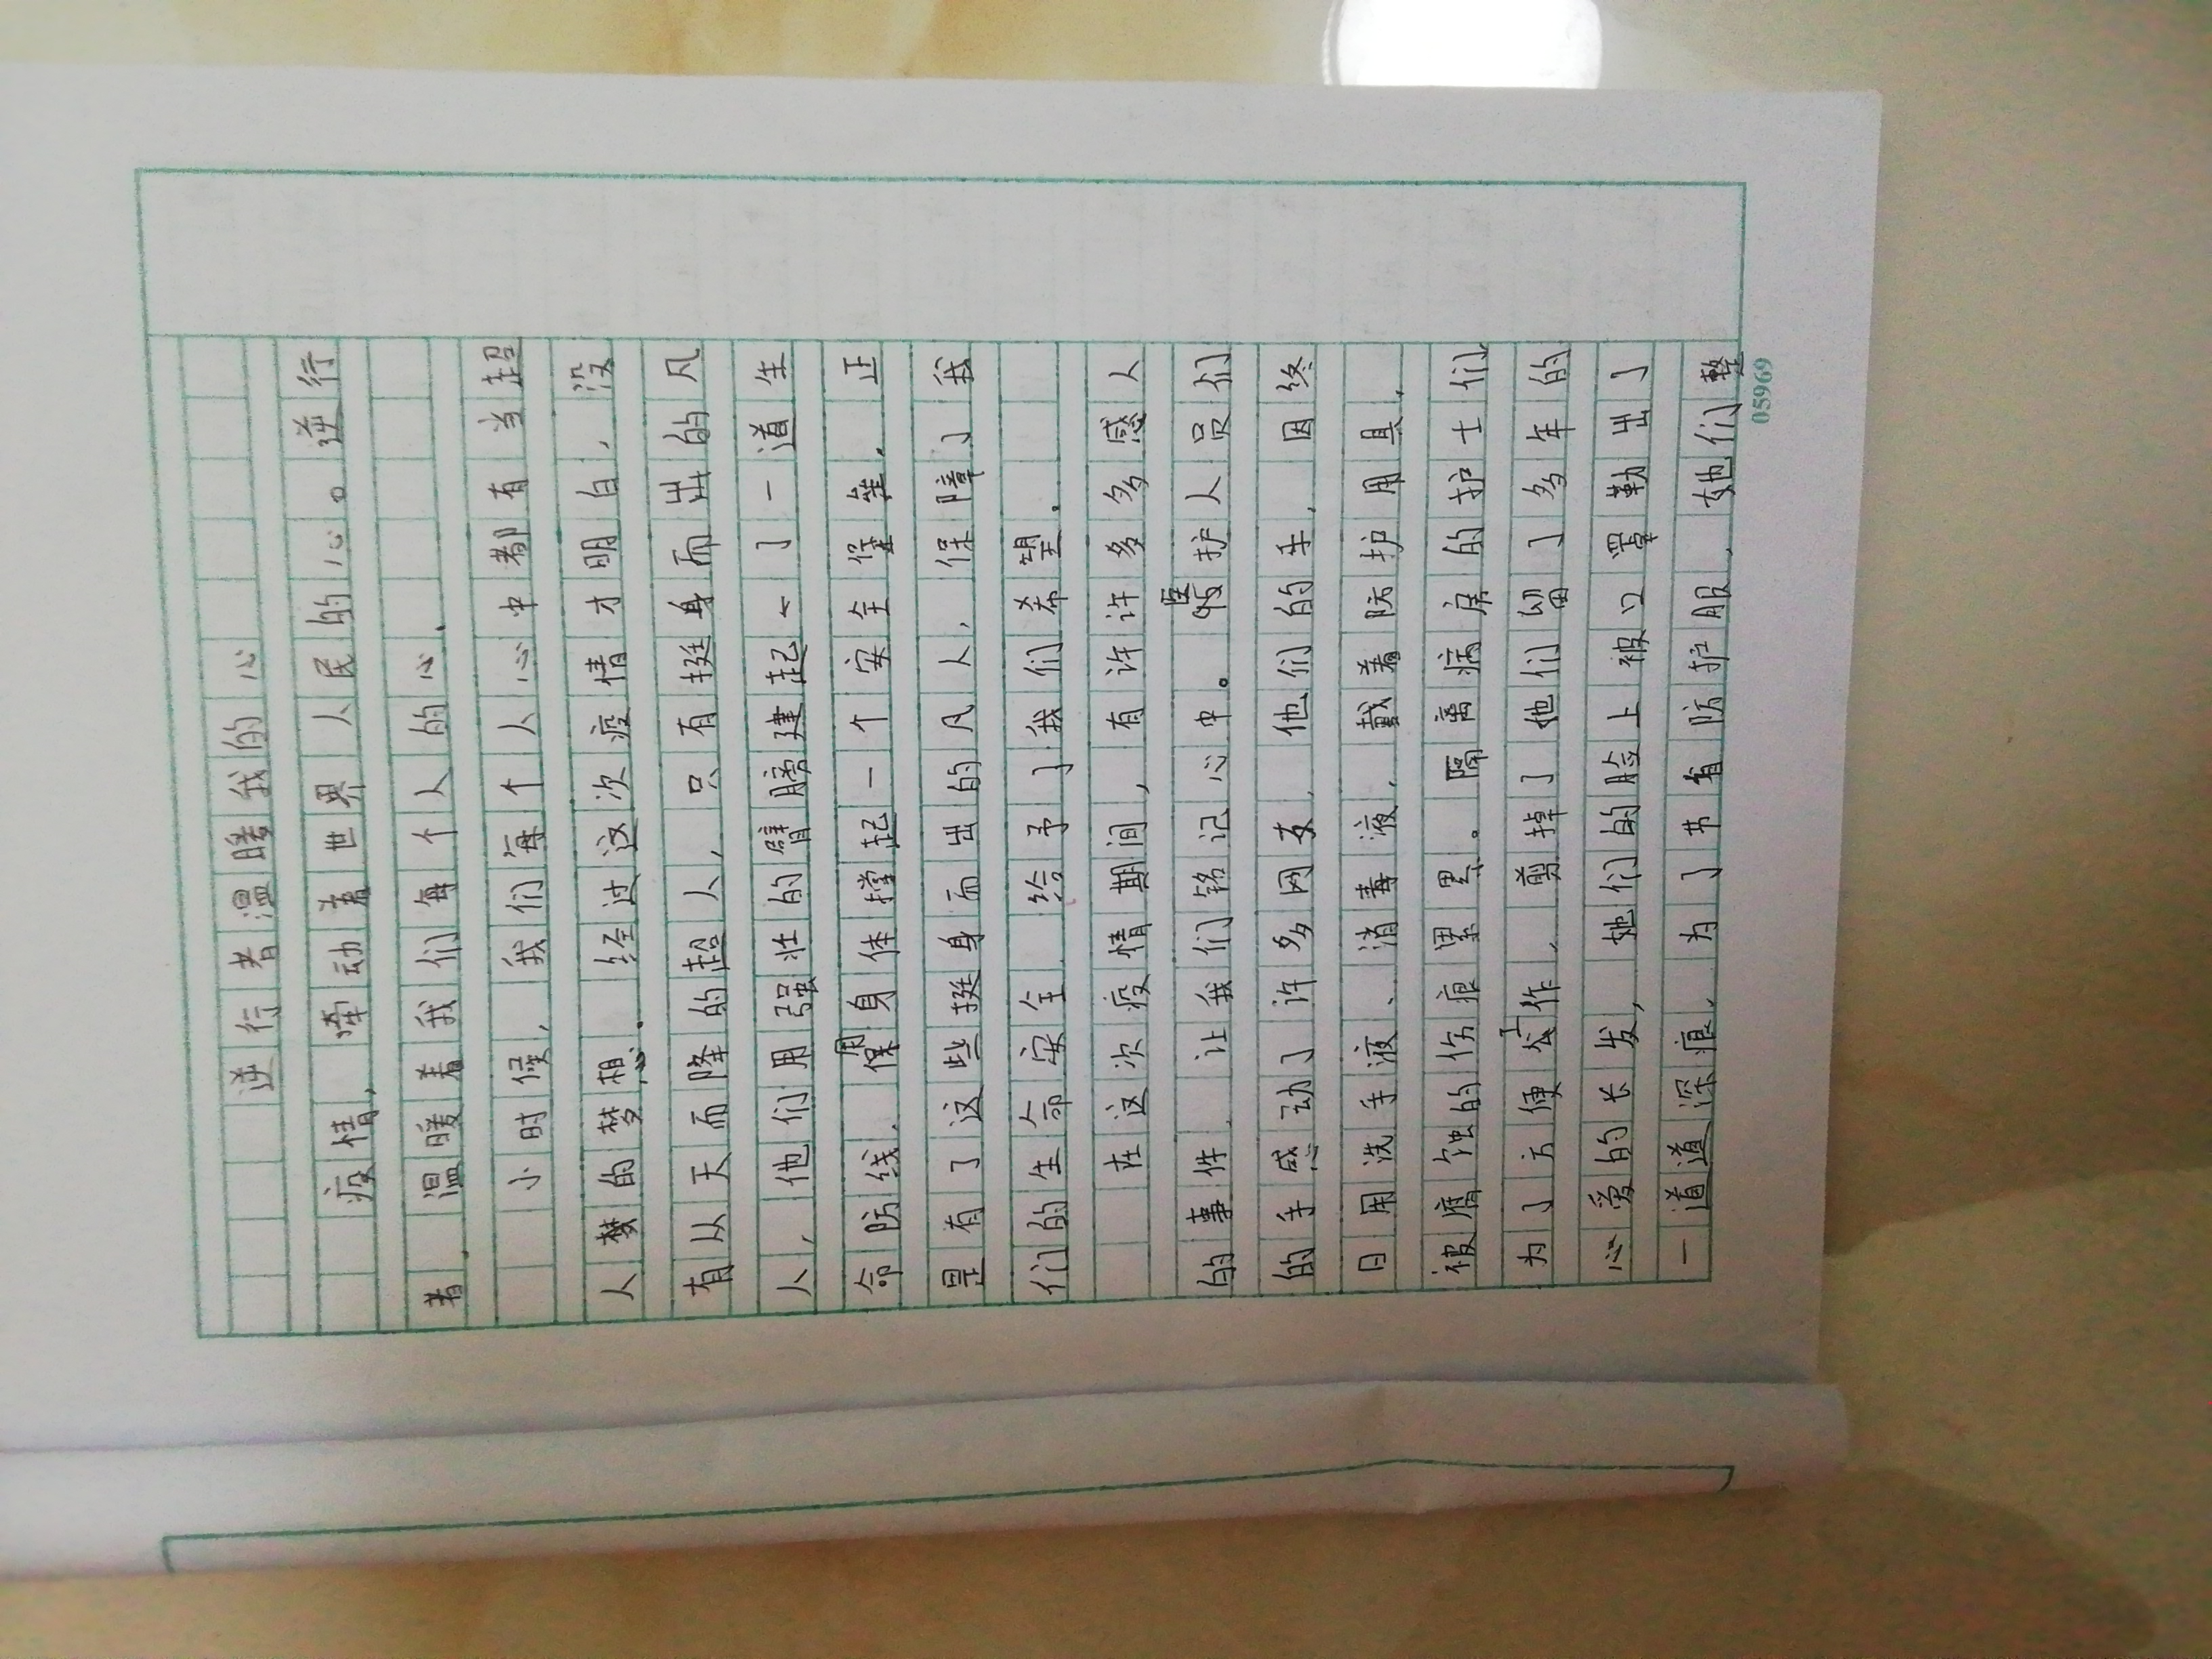 逆行者温暖我的心
疫情，牵动着世界人民的心。逆行
者，温暖着我们每个人的心。
小时侯，我们每个人心中都有当超
人的梦想。经过这次疫情才明白，没
有从天而降的超人，只有挺身而出的凡
人，他们用强壮的臂膀建起了一道生
命防线，用身体撑起一个安全堡垒。正
是有了这些挺身而出的凡人，保障了我
们的生命安全，给予了我们希望。
在这次疫情期间，有许许多多感人
的事件，让我们铭记心中。医护人员们
的手感动了许多网友，他们的手，因终
日用洗手液、消毒液，戴着防护用具，
被腐蚀的伤痕累累。隔离病房的护士们
为了方便工作，剪掉了他们留了多年的
心爱的长发，她们的脸上被口罩勒出了
一道道深痕，为了节省防护服，她们整
05969